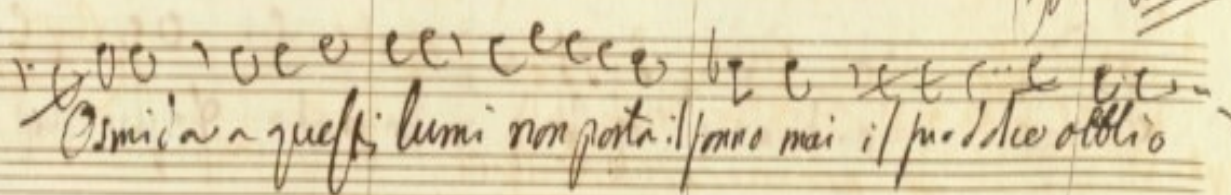 Osmida a questi lumi non porta il sonno mai il suo dolce obblio